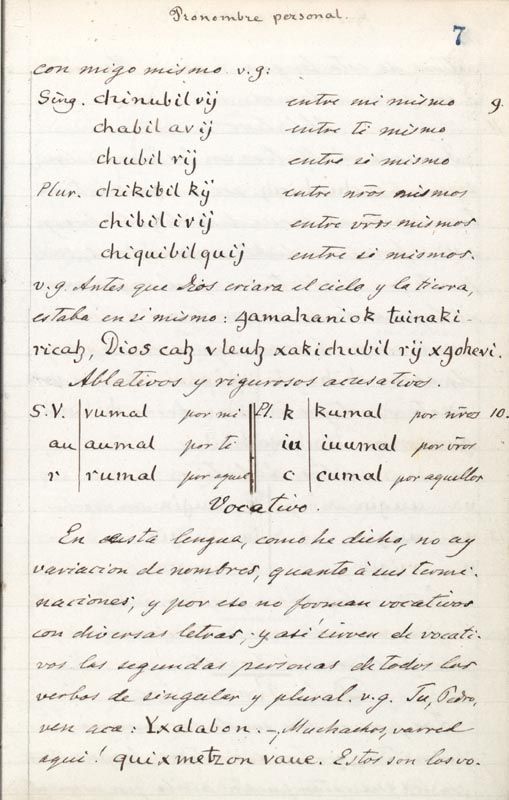 Pronombre personal.
7
con migo mismo v.g:
Sing. chinubil vij entre mi mismo 9.
chabil avij entre ti mismo
chubil rij entre si mismo
Plur. chikibil kij entre nr̃os mismos
chibil ivij entre vr̃os mismos
chiquibil quij entre si mismos.
v.g. Antes que Dios criara el cielo y la tierra,
estaba en si mismo: gamahaniok tuinaki-
ricaꜩ, Dios caꜩ vleuꜩ xakichubil rij xgohevi.
Ablativos y rigurosos acusativos.
S. V. vumal por mi Pl. k kumal por nr̃os 10.
au aumal por ti iu iuumal por vr̃os
r rumal por aquel c cumal por aquellos
Vocativo.
En esta lengua, como he dicho, no ay
variacion de nombres, quanto à sus termi-
naciones, y por eso no forman vocativos
con diversas letras; y asi sirven de vocati-
vos las segundas personas de todos los
verbos de singular y plural. v.g. Tu, Pedro,
ven aca: Yxalabon. –, Muchachos, varred
aqui! quixmetzon vave. Estos son los vo-